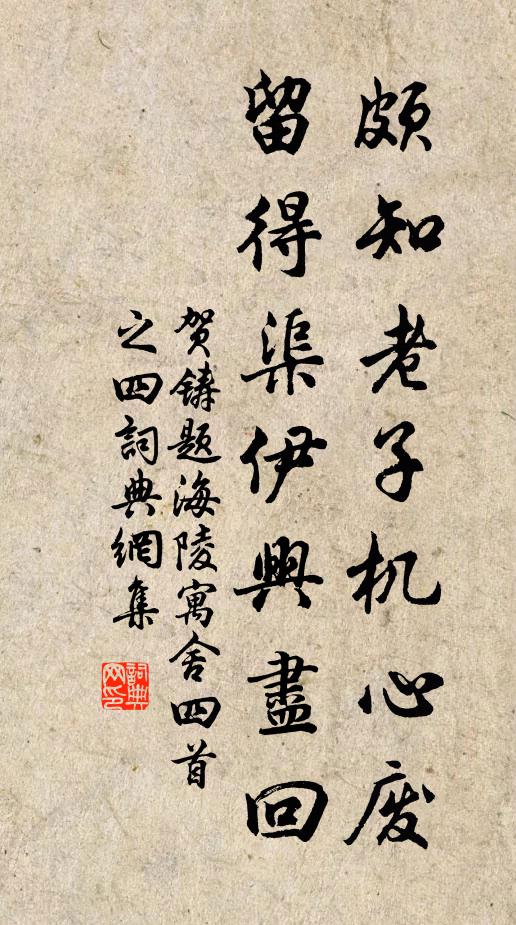 颇知老子机心废
留得渠伊興盡回
贺鑄题海陵寓舍四首
之四詞典網集
詞典
网印